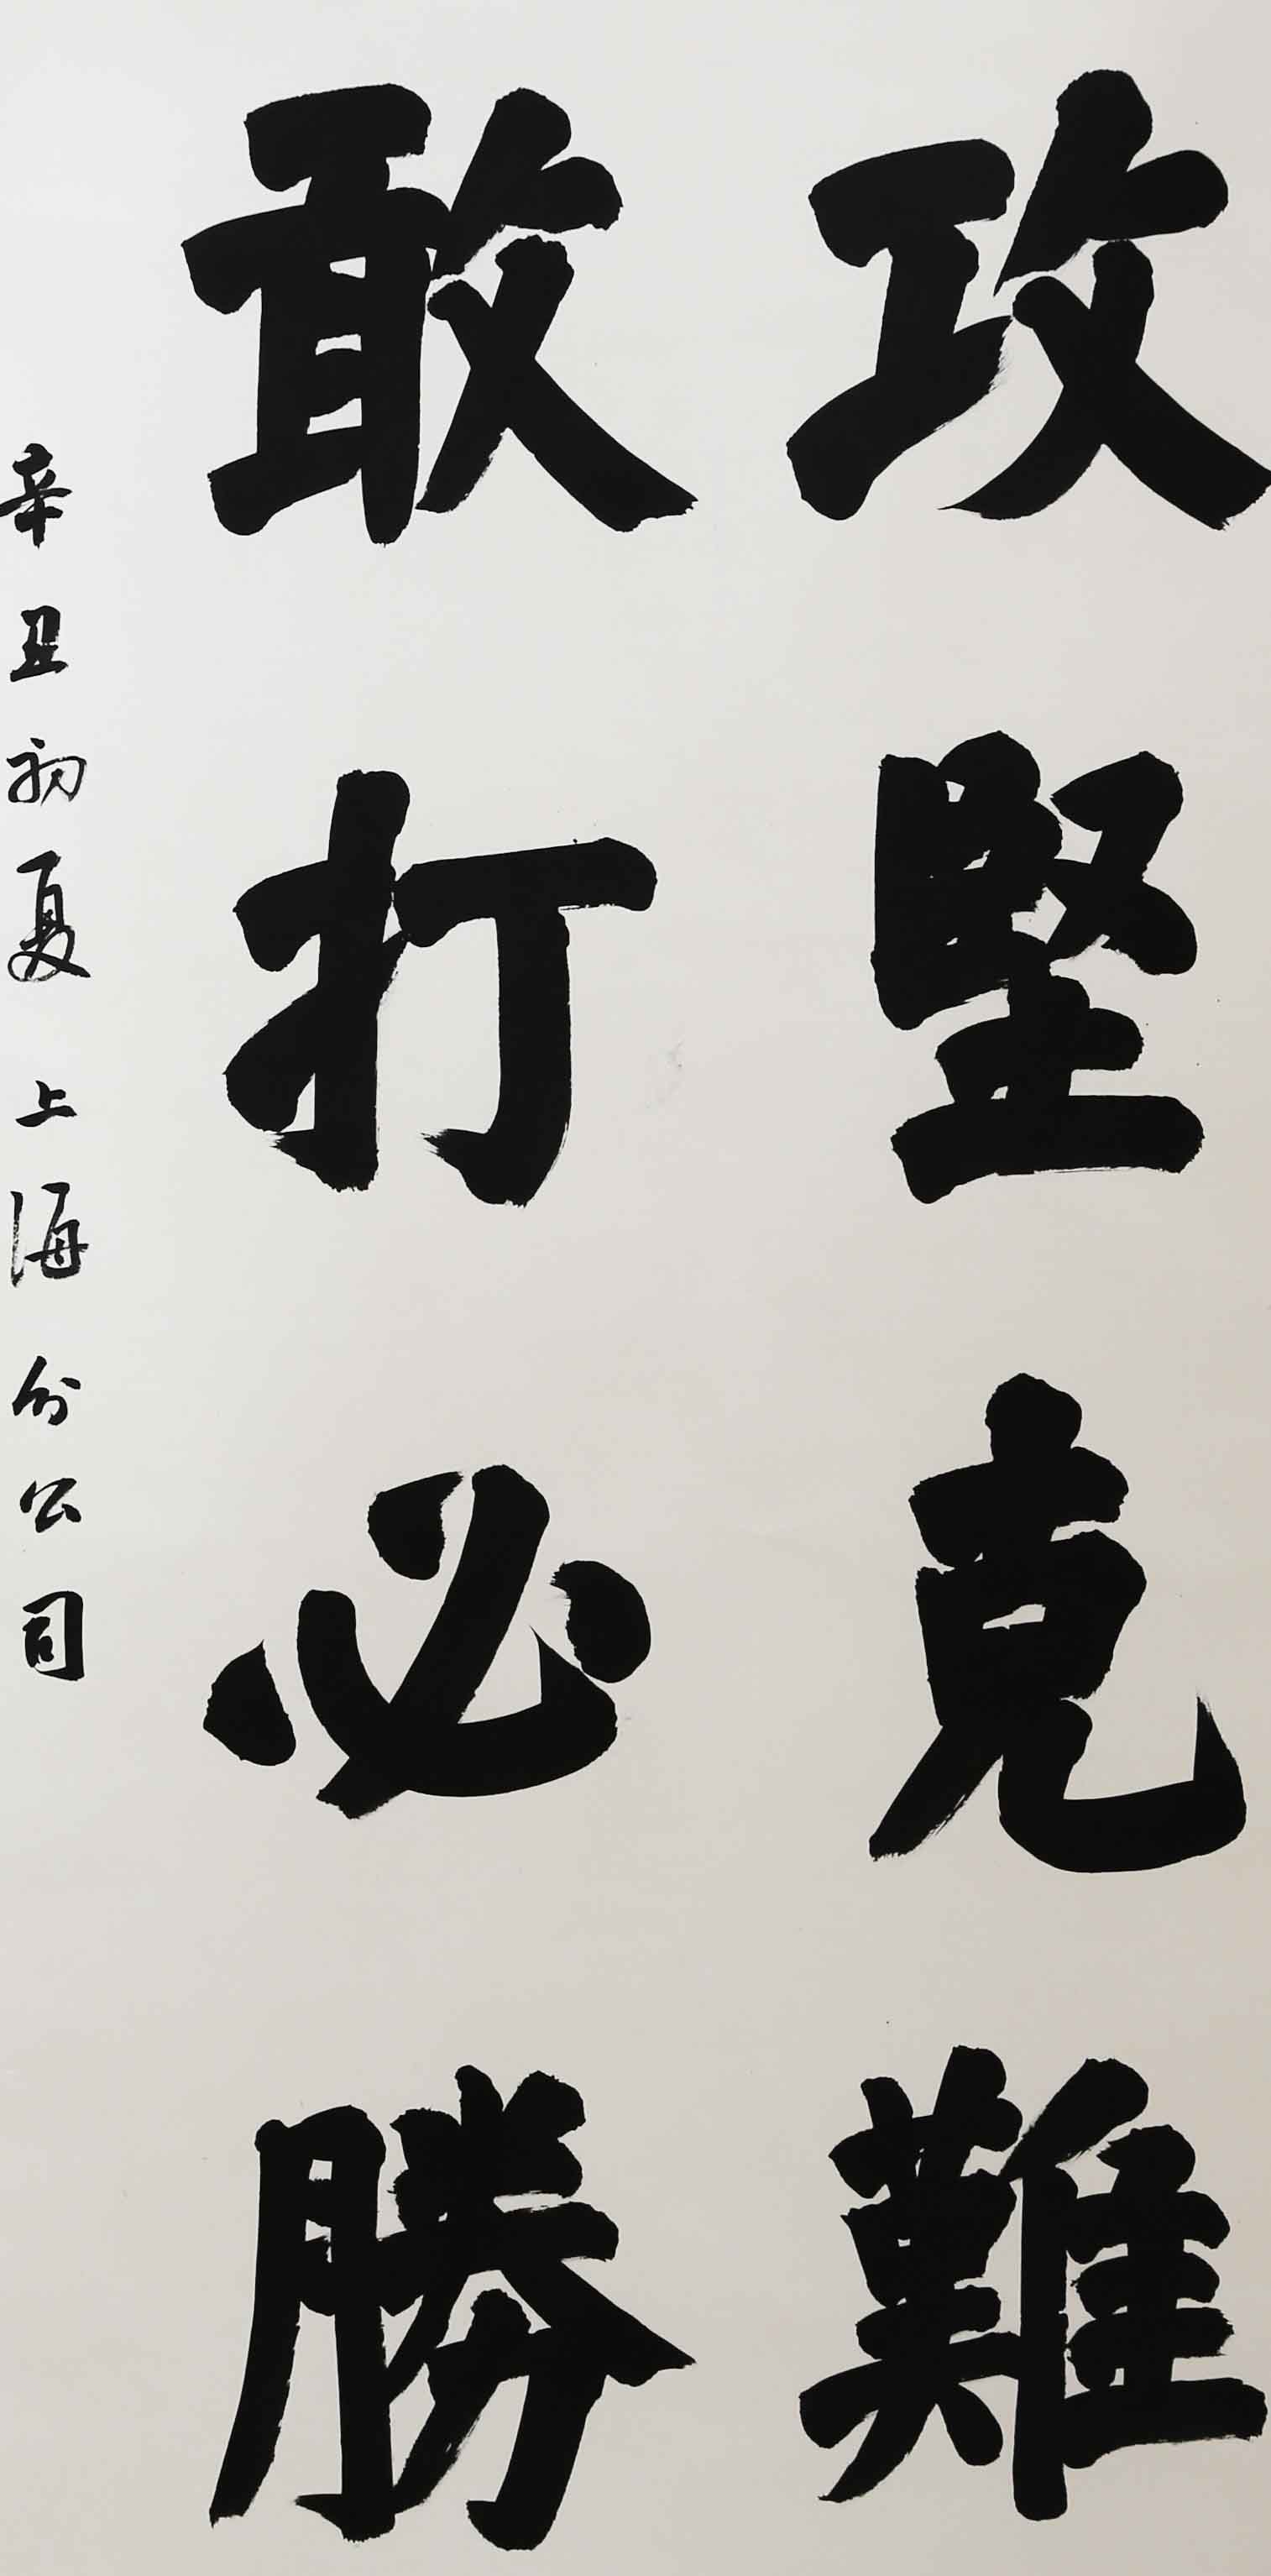 攻堅克難
敢打必勝
辛丑初夏 上海分公司